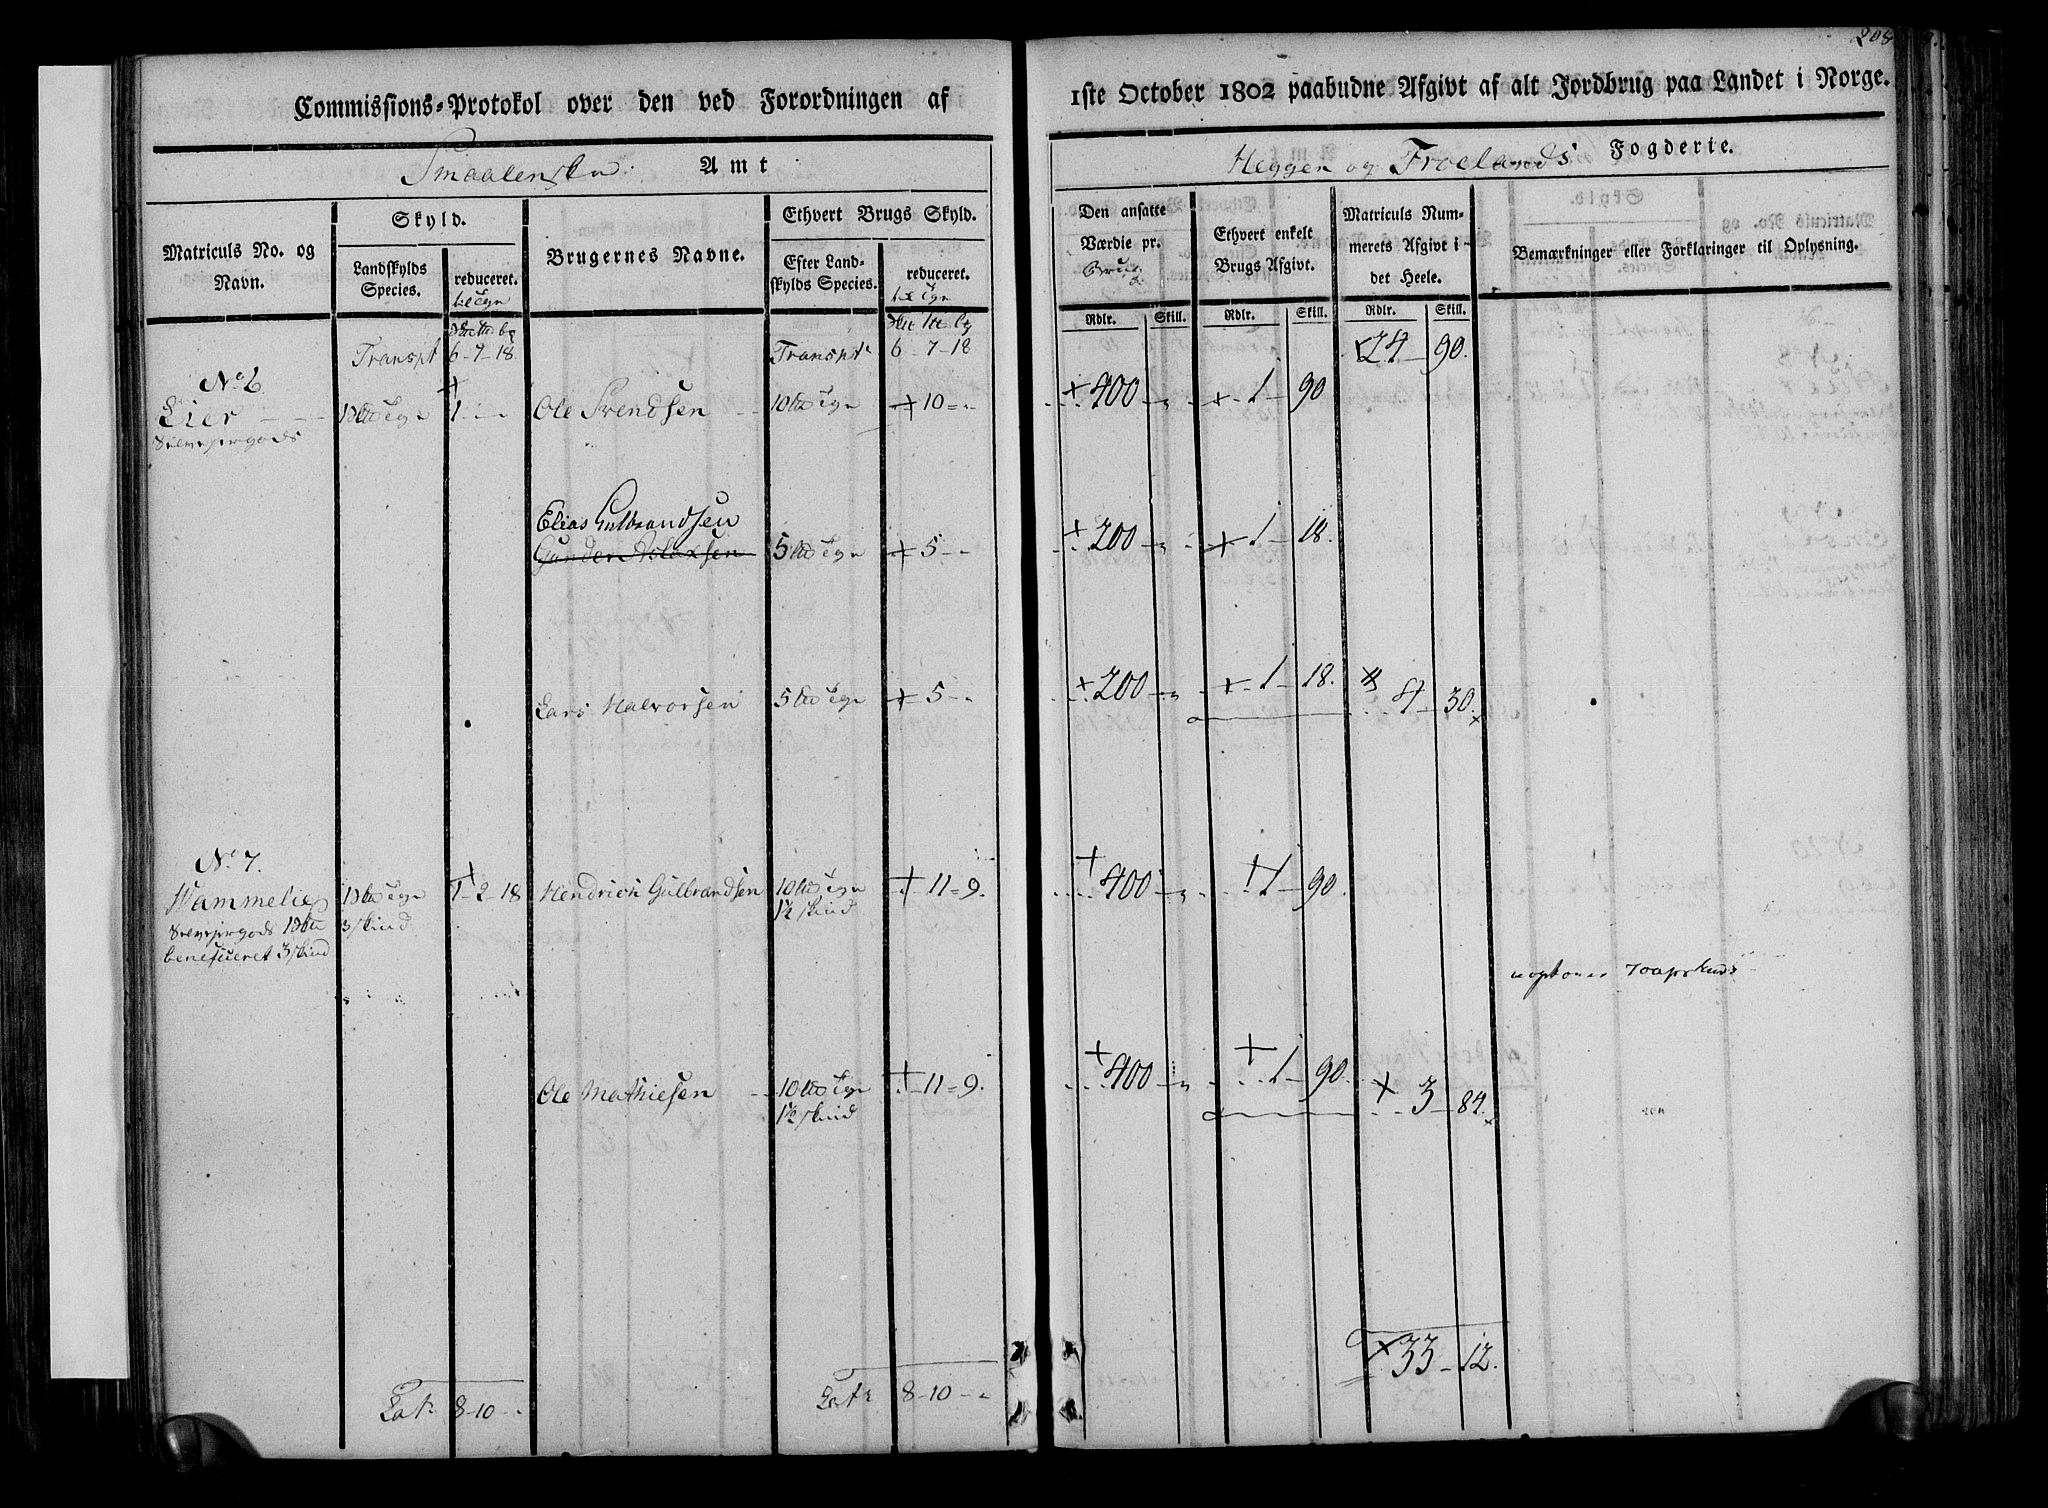 208
Commissions-Protokol over den ved Forordningen af
1ste October 1802 paabudne Afgivt af alt Jordbrug paa Landet i Norge.
Smaalenske Amt
Heggen og Froelands Fogderie.
Matriculs No. og Navn.
Skyld.
Landskylds Species.
reduceret.
Brugernes Navne.
Ethvert Brugs Skyld.
Efter Landskylds Species.
reduceret.
Den ansatte Værdie pr. Brug
Rdlr. Skill.
Ethvert enkelt Brugs Afgivt.
Rdlr. Skill.
Matriculs Nummerets Afgivt i det Heele.
Rdlr. Skill.
Bemærkninger eller Forklaringer til Oplysning.
Transpt 6-7-18 Transpt 6-7-18 24-90.
No 6
Eier 1 Ole Svendsen 10 +10 +400 +1 90
Elias Gulbrandsen
Gunder Aslaxsen 5 +5 +200 +1-18.
Lars Halvorsen 5 +5 +200 +1-18. 4-30.
No 7.
Hammelie 1-2-18 Hendrich Gulbrandsen 10 +11=9. +400 +1-90.
3 skind 1½ skind
beneficeret 3 skind
Ole Mathiesen 10 +11=9. +400 +1-90. +3-84.
1½ skind
+33-12.
Lat. 8-10 Latr 8-10